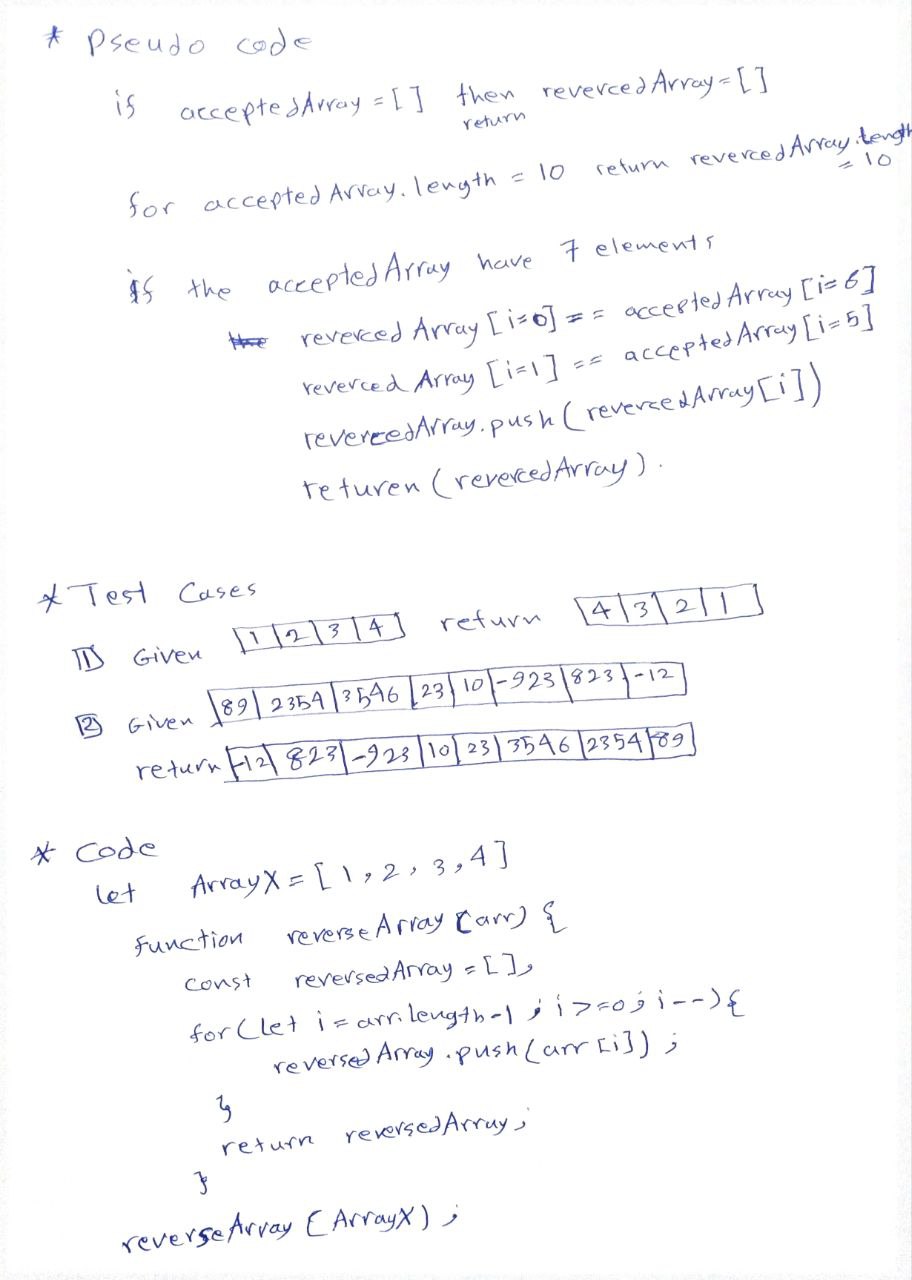 * Pseudo code
if acceptedArray = [ ] then revercedArray = [ ]
return
for accepted Array. length = 10 return reverced Array. length
= 10
if the accepted Array have 7 elements
the reverced Array [i=0] == accepted Array [i=6]
reverced Array [i=1] == accepted Array [i=5]
revercedArray. push (revercedArray[i])
returen (revercedArray).
* Test Cases
[1] Given [1|2|3|4] return [4|3|2|1]
[2] Given [89|2354|3546|23|10|-923|823|-12]
return [-12|823|-923|10|23|3546|2354|89]
* Code
let ArrayX = [1, 2, 3, 4]
function reverseArray (arr) {
const reversedArray = [ ],
for (let i = arr.length-1 ; i >=0; i--) {
reversedArray .push (arr [i]) ;
}
return reversedArray ;
}
reverseArray (ArrayX) ;